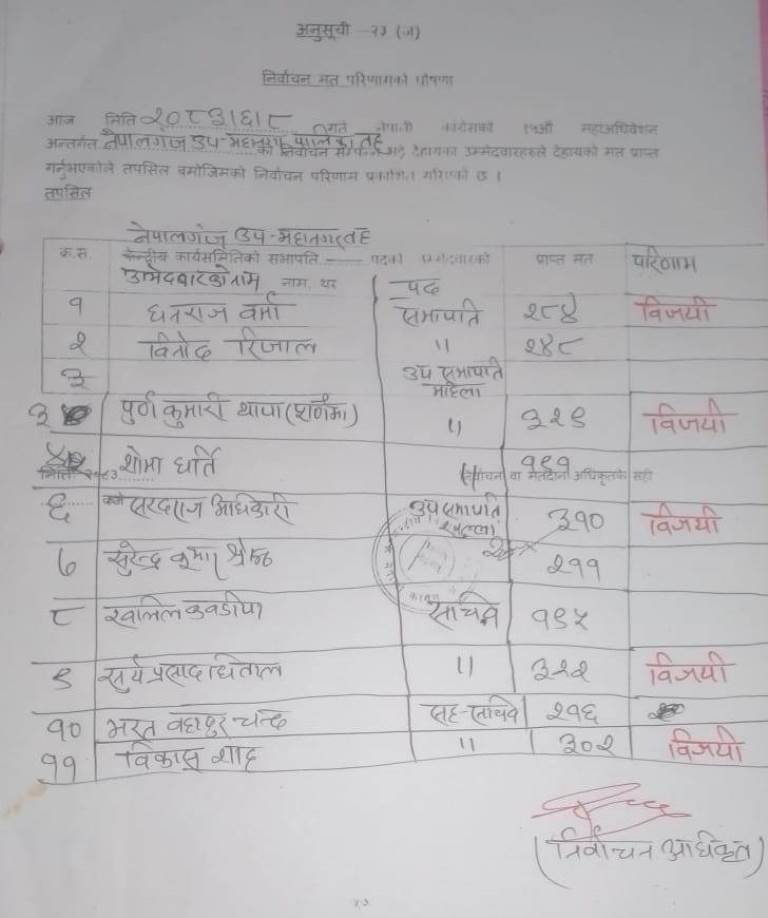 अनुसूची -२३ (ज)
निर्वाचन मत परिणामको घोषणा
आज मिति २०८३।६।८ गते नेपाली कांग्रेसको १५औं महाअधिवेशन
अन्तर्गत नेपालगंज उप-महानगरपालिका तह को निर्वाचन देहायका उम्मेदवारहरुले देहायको मत प्राप्त
गर्नुभएकोले तपसिल बमोजिमको निर्वाचन परिणाम प्रकाशित गरिएको छ ।
तपसिल
नेपालगंज उप-महानगर तह
क्र.स. केन्द्रीय कार्यसमितिको सभापति पदका उम्मेदवारको प्राप्त मत परिणाम
उम्मेदवारको नाम नाम, थर पद
१ धनराज वर्मा सभापति २८४ विजयी
२ विनोद रिजाल " २४८
३ उप सभापति महिला
३ पुर्ण कुमारी थापा () " ३२९ विजयी
शोभा घर्ति " १९१
मिति: वा मतदान अधिकृतको सही
६ अधिकारी उप सभापति खुल्ला ३१० विजयी
७ सुरेन्द्र कुमार २११
८ खलिल सचिव १९५
९ सुर्य प्रसाद धिताल " ३२२ विजयी
१० भरत बहादुर चन्द सह-सचिव २१६
११ विकास शाह " ३०२ विजयी
(निर्वाचन अधिकृत)